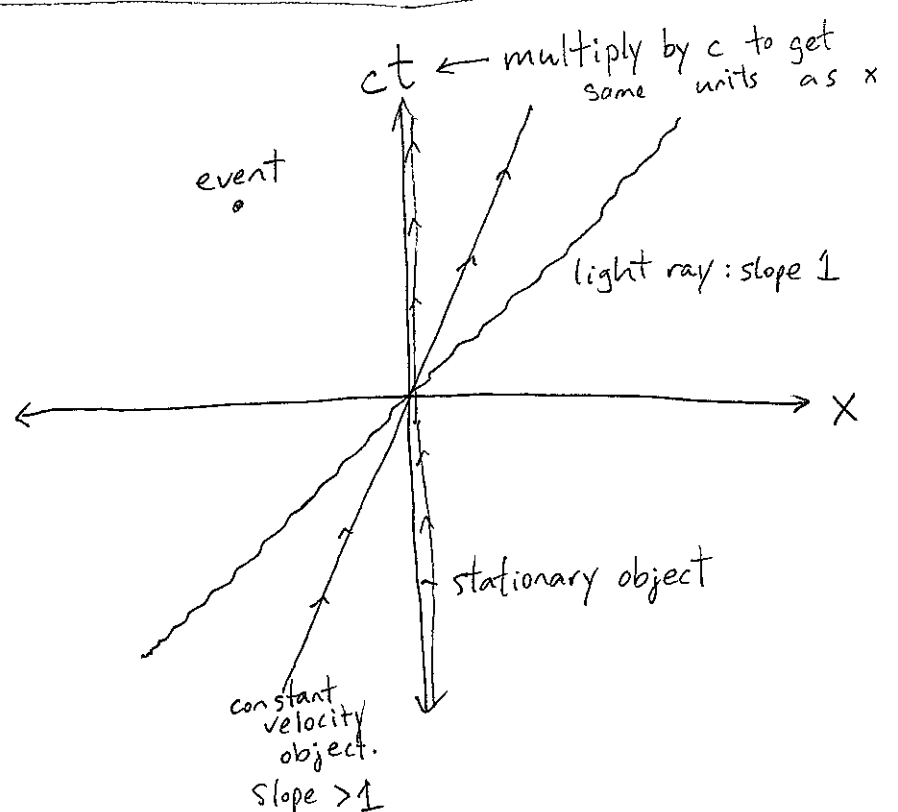 ct ← multiply by c to get
same units as x
event
light ray: slope 1
x
stationary object
constant
velocity
object.
Slope >1